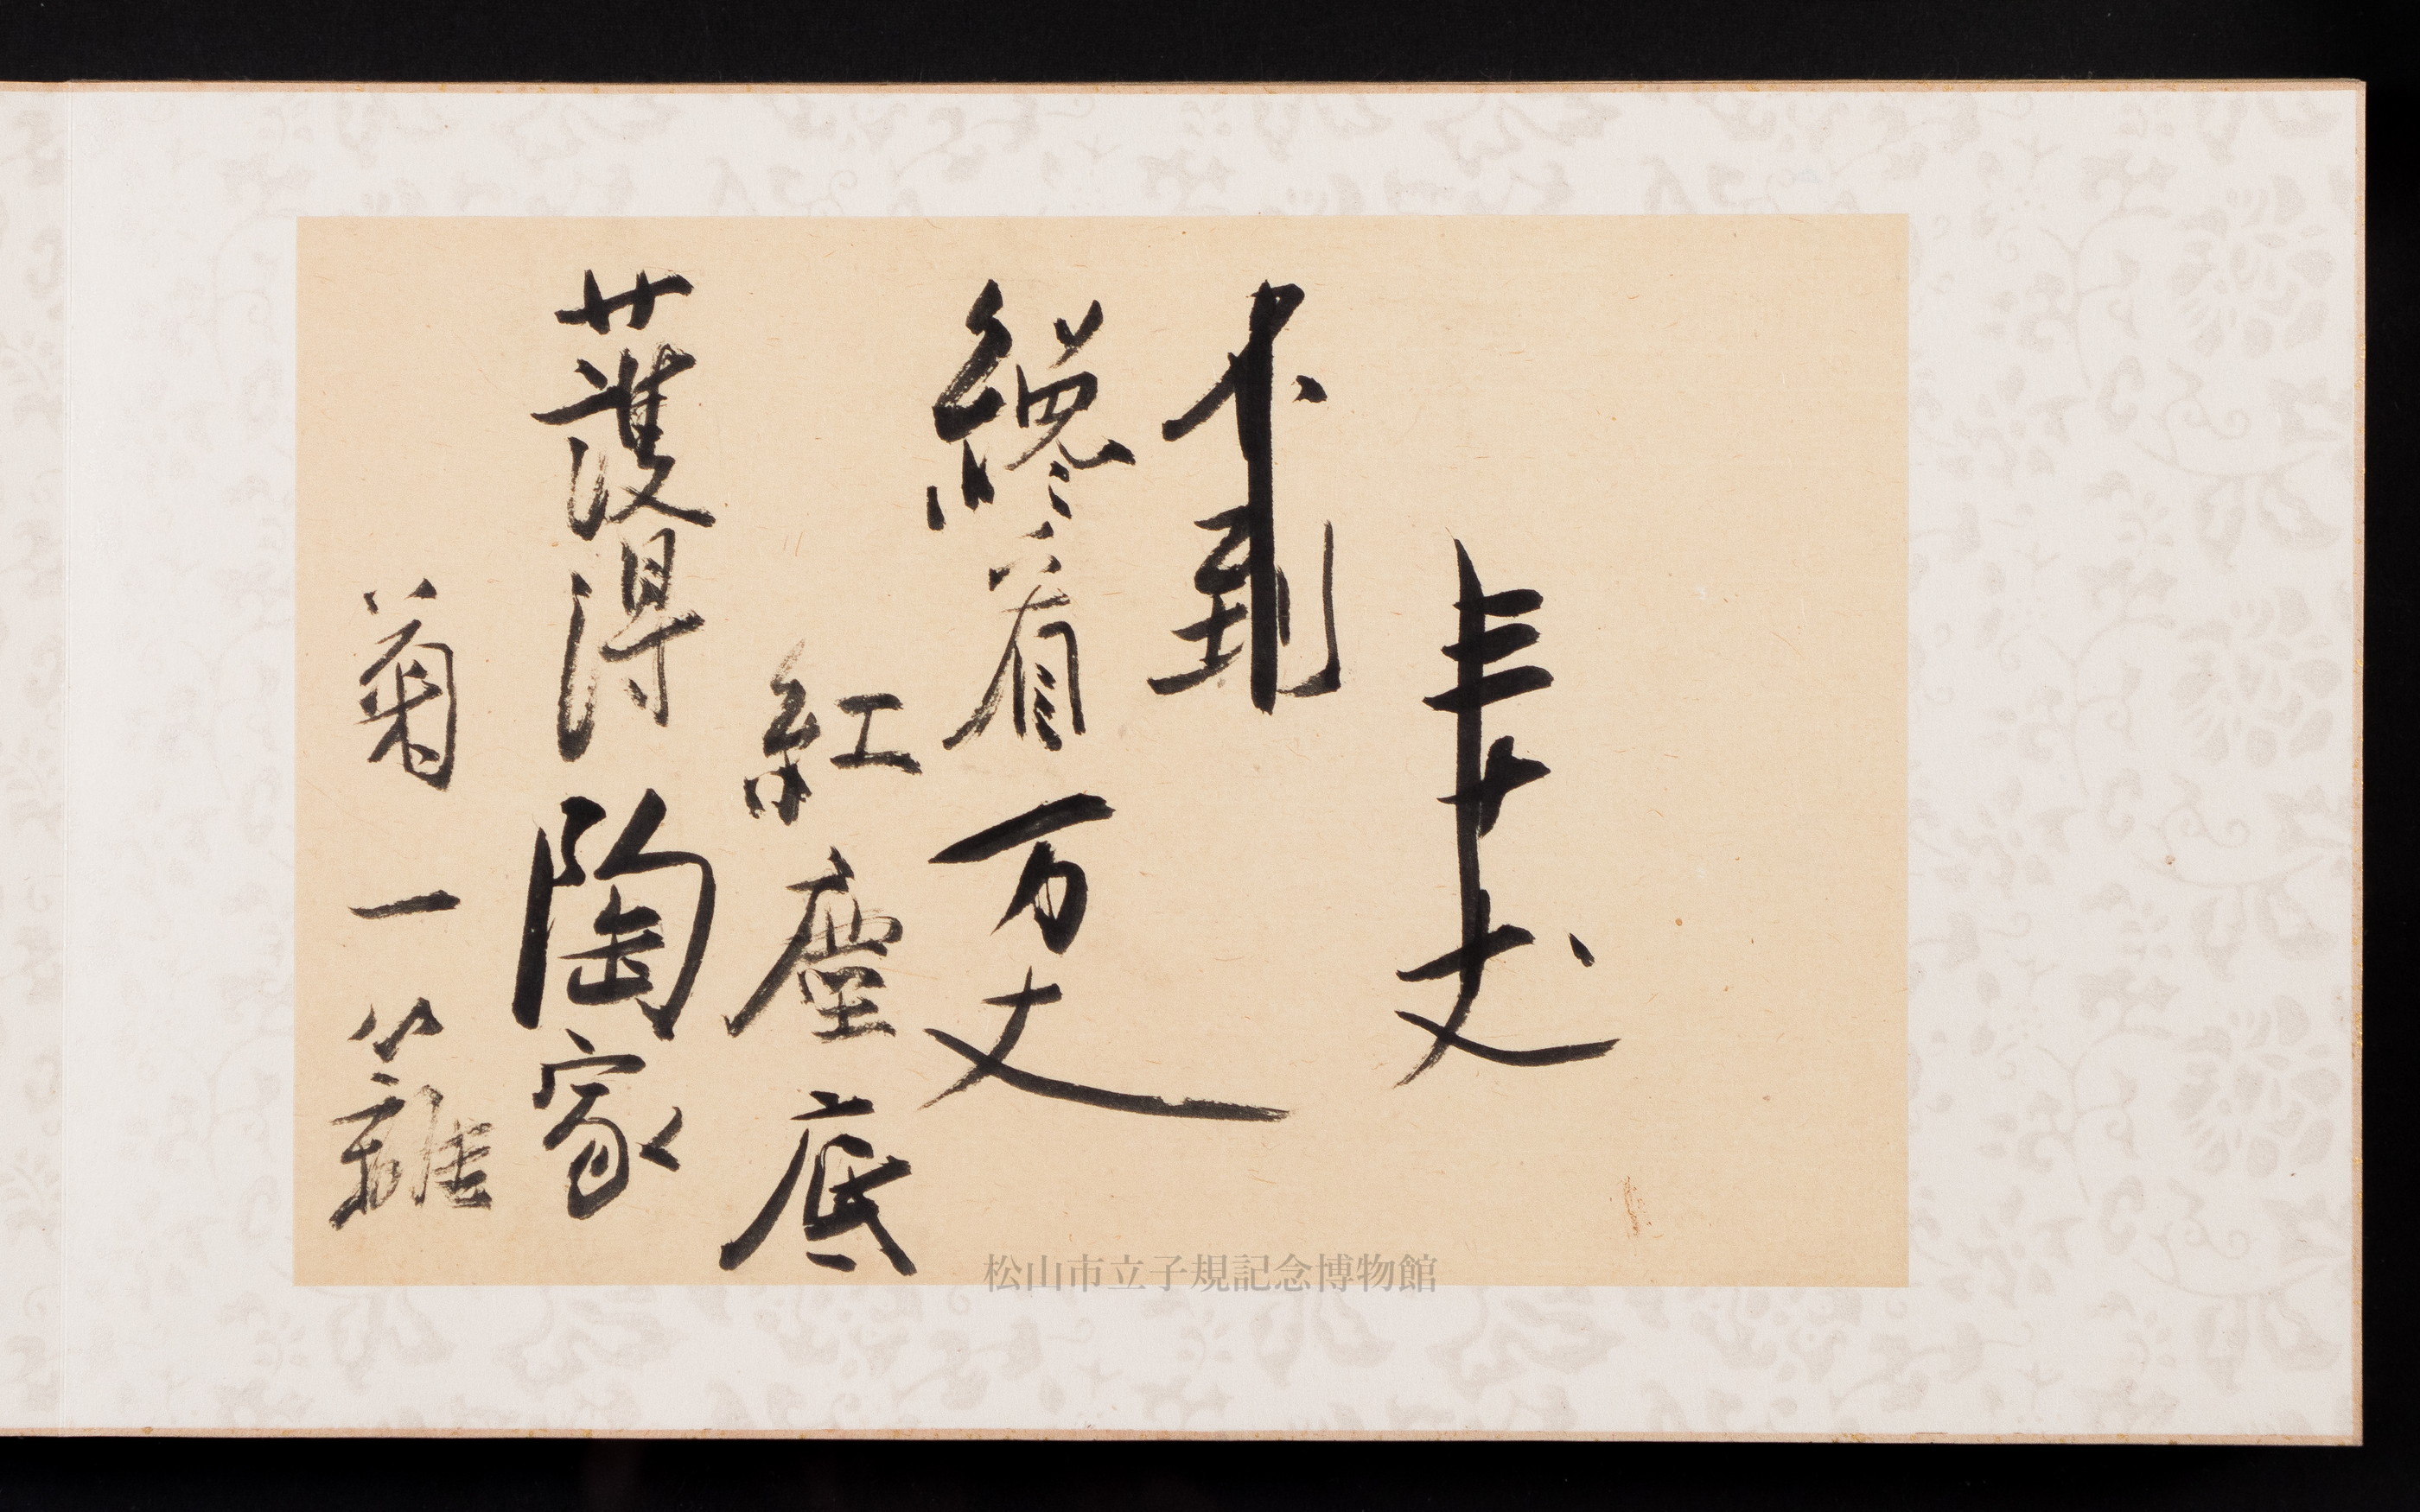 不到
緫看万丈
紅塵底
護得陶家
菊一籬
松山市立子規記念博物館